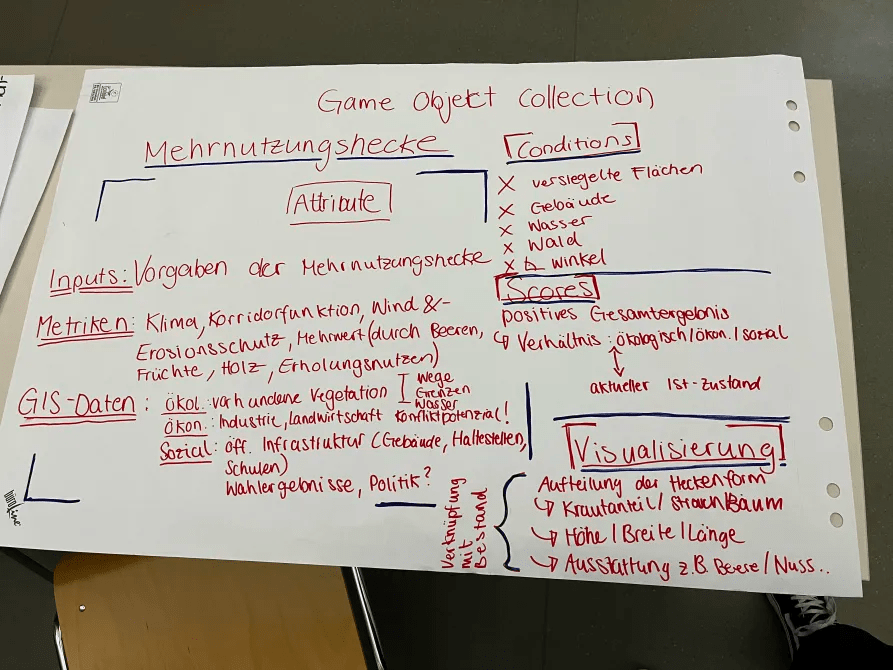 Game Object Collection
Mehrnutzungshecke
Attribute
Inputs: Vorgaben der Mehrnutzungshecke
Metriken: Klima, Korridorfunktion, Wind &-
Erosionsschutz, Mehrwert (durch Beeren,
Früchte, Holz, Erholungsnutzen)
GIS-Daten: ökol.: vorhandene Vegetation
Wege
Grenzen
Wasser
Ökon.: Industrie, Landwirtschaft Konfliktpotenzial!
Sozial: öff. Infrastruktur (Gebäude, Haltestellen,
Schulen)
Wahlergebnisse, Politik?
Conditions
X versiegelte Flächen
X Gebäude
X Wasser
X Wald
X winkel
Scores
positives Gesamtergebnis
↳ Verhältnis: ökologisch/ökon./sozial
↕
aktueller Ist-Zustand
Visualisierung
Verknüpfung
mit
Bestand
Aufteilung der Heckenform
↳ Krautanteil/Strauch/Baum
↳ Höhe/Breite/Länge
↳ Ausstattung z.B. Beere/Nuss..